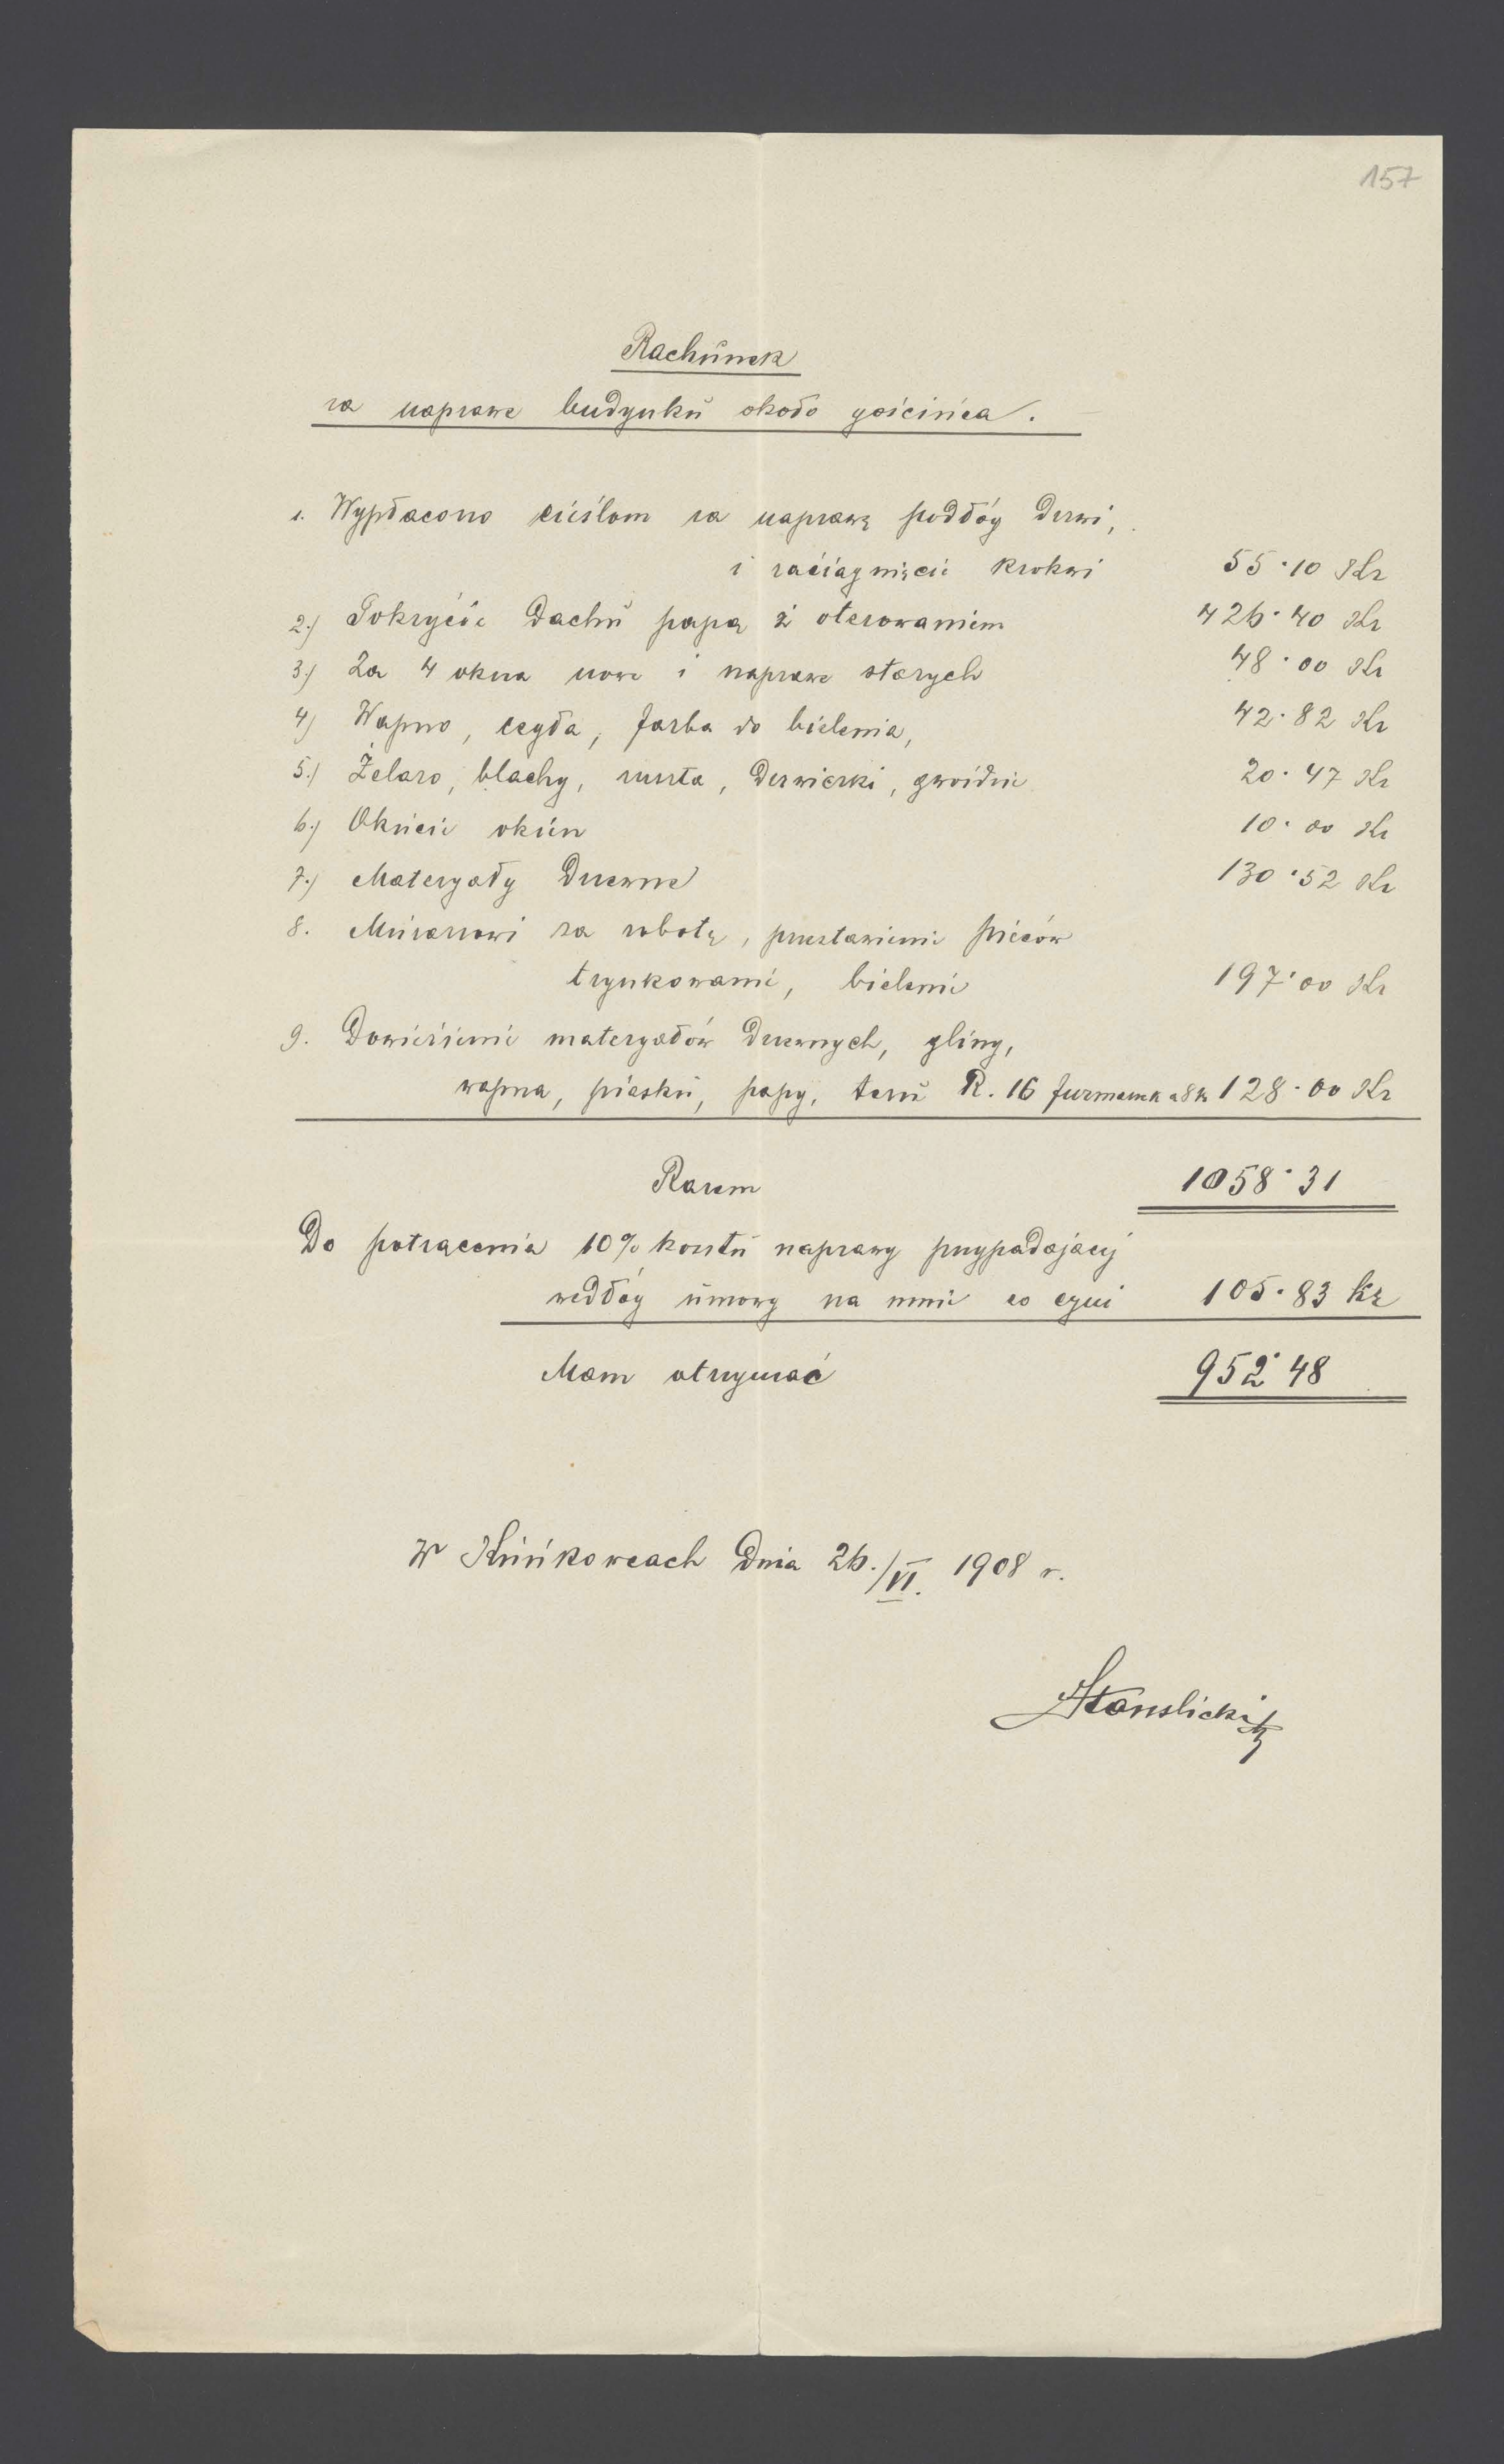 157
Rachunek
za naprawę budynku około gościńca.
1. Wypłacono cieślom za naprawę podłóg drzwi,
i zaciągnięcie krokwi 55·10 Kr
2.) Pokrycie dachu papą z oterowaniem 426·40 Kr
3.) Za 4 okna nowe i naprawę starych 48·00 Kr
4) Wapno, cegła, farba do bielenia, 42·82 Kr
5.) Żelazo, blachy, ruszta, drzwiczki, gwoździe 20·47 Kr
6.) Okucie okien 10·00 Kr
7.) Materyały drzewne 130·52 Kr
8. Murarzowi za robotę, przestawienie pieców
trynkowanie, bielenie 197·00 Kr
9. Dowiezienie materyałów drzewnych, gliny,
wapna, piasku, papy, teru R. 16 furmanek a 8 k 128·00 Kr
Razem 1058·31
Do potrącenia 10% kosztu naprawy przypadającej
wedłóg umowy na mnie co czyni 105·83 Kr
Mam otrzymać 952·48
W Kuńkowcach dnia 26./VI. 1908 r.